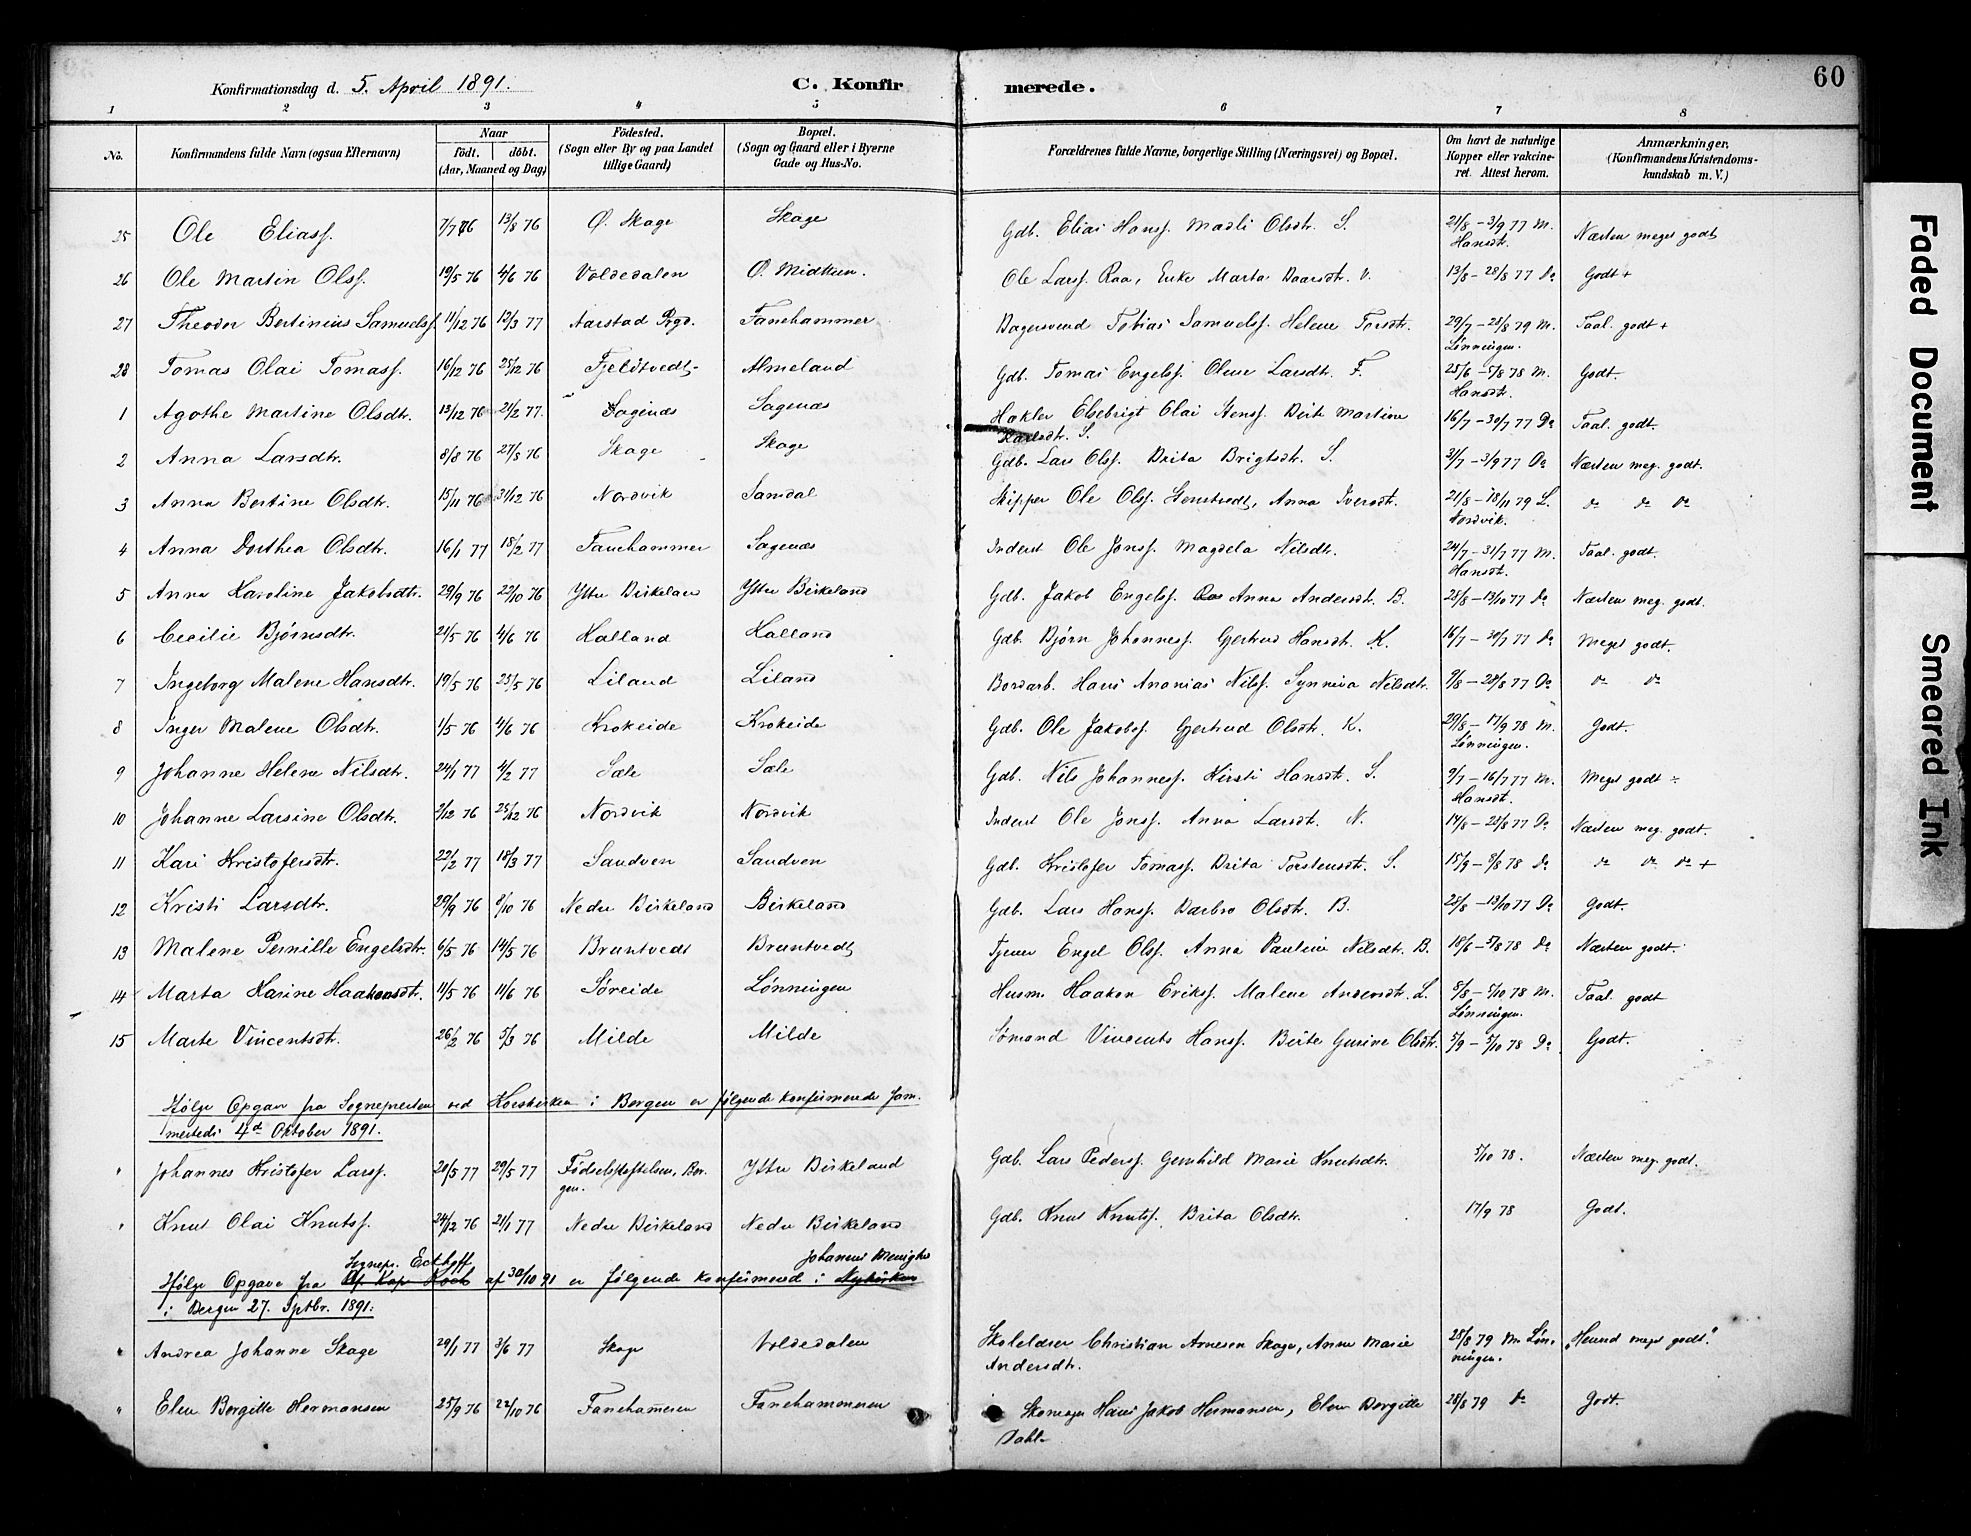 60
Konfirmationsdag d. 5. April 1891.
C. Konfir merede.
1 2 3 4 5 6 7 8
No.
Konfirmandens fulde Navn (ogsaa Efternavn)
Naar
födt. döbt.
(Aar, Maaned og Dag)
Födested.
(Sogn eller By og paa Landet
tillige Gaard)
Bopæl.
(Sogn og Gaard eller i Byerne
Gade og Hus-No.
Forældrenes fulde Navne, borgerlige Stilling (Næringsvei) og Bopæl.
Om havt de naturlige
Kopper eller vakcine-
ret. Attest herom.
Anmærkninger,
(Konfirmandens Kristendoms-
kundskab m. V.)
Ole Eliass. 7/7 76 13/8 76 Ø. Skage Skage Gdb. Elias Hanss. Madli Olsdtr. S. 21/8 - 3/9 77 M. Hansdt. Næsten meget godt
26 Ole Martin Olss. 19/5 76 4/6 76 Voldedalen Ø. Midttun. Ole Larss. Raa, Enke Marta 13/8 - 28/8 77 Do Godt +
27 Theodor Bertinius Samuelss. 11/12 76 12/3 77 Aarstad Prgd. Fanehammer Bagersvend Tobias Samuelss. Helene 29/7 - 28/8 79 M. Lönningen. Taal. godt +
28 Tomas Olai Tomass. 16/12 76 25/12 76 Fjeldtvedt Almeland Gdb. Tomas Engelss. Oline Larsdt. F. 25/6 - 5/8 78 M. Hansdt. Godt.
1 Agathe Martine Olsdtr. 13/12 76 21/2 77. Sagenæs Sagenæs Elsebrigt Olai Martine Karlsdt. S. 16/7 - 30/7 77 Do Taal. godt.
2 Anna Larsdtr. 8/8 76 27/8 76 Skage Skage Gdb. Lars Olss. Brita Brigtsdt. S. 31/7 - 3/9 77 Do Næsten meg. godt.
3 Anna Bertine Olsdtr. 15/11 76 31/12 76 Nordvik Samdal Skipper Ole Olss. Anna Iversdt. 21/8 - 18/11 79 L. Nordvik. do do do
4 Anna Dorthea Olsdtr. 16/1 77 18/2 77 Fanehammer Sagenæs Inderst Ole Jonss. Magdela Nilsdt. 24/7 - 31/7 77 M. Hansdt. Taal. godt.
5 Anna Karoline Jakobsdtr. 29/9 76 22/10 76 Yttre Birkeland Yttre Birkeland Gdb. Jakob Engelss. Anna Andersdt. B. 28/8 - 13/10 77 Do Næsten meg. godt.
6 Cecilie Bjørnsdtr. 21/5 76 4/6 76 Kalland Kalland Gdb. Bjørn Johanness. Gjertrud Hansdt. K. 16/7 - 30/7 77 Do Meget godt.
7 Ingeborg Malene Hansdtr. 19/5 76 25/5 76 Liland Liland Bordarb. Hans Ananias Nilss. Synneva Nilsdtr. 9/8 - 28/8 77 Do do do
8 Inger Malene Olsdtr. 1/5 76 4/6 76 Krokeide Krokeide Gdb. Ole Jakobss. Gjertrud Olsdt. K. 29/8 - 17/9 78 M. Lönningen. Godt.
9 Johanne Helene Nilsdtr. 24/1 77 4/2 77 Sæle Sæle Gdb. Nils Johanness. Kirsti Hansdt. S. 9/7 - 16/7 77 M. Hansdt. Meget godt ÷
10 Johanne Larsine Olsdtr. 2/12 76 25/12 76 Nordvik Nordvik Inderst Ole Jonss. Anna Larsdt. N. 14/8 - 28/8 77 Do Næsten meg. godt.
11 Kari Kristofersdtr. 22/2 77 18/3 77 Sandven Sandven Gdb. Kristofer Tomass. Brita Torstensdt. S. 15/9 - 8/8 78 do do do do +
12 Kristi Larsdtr. 29/9 76 8/10 76 Nedre Birkeland Birkeland Gdb. Lars Hanss. Barbro Olsdtr. B. 28/8 - 13/10 77 Do Godt.
13 Malene Pernille Engelsdtr. 6/5 76 14/5 76 Brantvedt Brantvedt Tjener Engel Olss. Anna Pauline Nilsdtr. B. 18/6 - 5/8 78 do Næsten godt.
14 Marta Karine Haakonsdtr. 11/5 76 11/6 76 Søreide Lönningen Husm. Haakon Erikss. Malene Andersdt. L. 8/8 - 5/10 78 M. Lönningen. Taal. godt
15 Marte Vincentsdtr. 26/2 76 5/3 76 Milde Milde Sömand Vincents Hanss. Birte Gurine Olsdtr. 5/9 - 5/10 78 Do Godt.
Ifølge Opgave fra Sognepresten ved Korskirken i Bergen er følgende konfirmerede sam-
mesteds 4de Oktober 1891.
" Johannes Kristofer Larss. 20/5 77 29/5 77 Födselsstiftelsen, Ber-gen. Yttre Birkeland Gdb. Lars Pederss. Gunhild Marie Knutsdtr. 5/10 78. Næsten meg. godt.
" Knut Olai Knutss. 24/12 76 21/1 77 Nedre Birkeland Nedre Birkeland Gdb. Knut Knutss. Brita Olsdtr. 17/9 78 Godt.
Sognepr. Eckhoff Johannes Menighd
Ifølge Opgave fra af 30/10 91 er følgende konfirmered i Nykirken
i Bergen 27. Sptbr. 1891:
" Andrea Johanne Skage 29/1 77 3/6 77 Skage Voldedalen Christian Arnesen Skage, Anne Marie Andersdtr. 28/8 79 M. Lön-ningen. meget godt."
" Elen Bergitte Hermansen 25/9 76 22/10 76 Fanehammeren Fanehammeren Hans Jakob Hermansen, Elen Bergitte Dahl 28/8 79 do Godt.
Faded Document
Smeared Ink